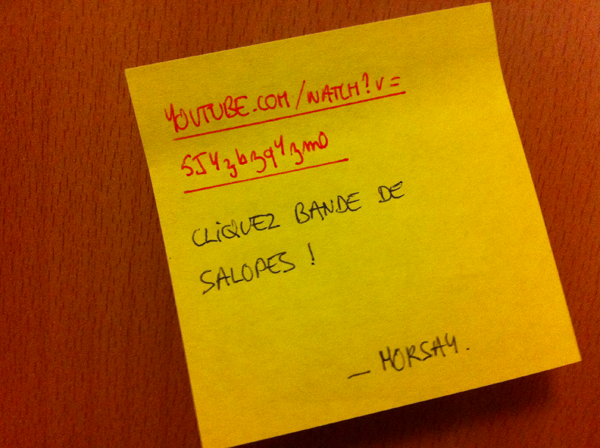 YOUTUBE.COM/WATCH?V=
5J4zbzq4zm0
CLiQUEZ BANDE DE
SALOPES !
_ MORSAY.